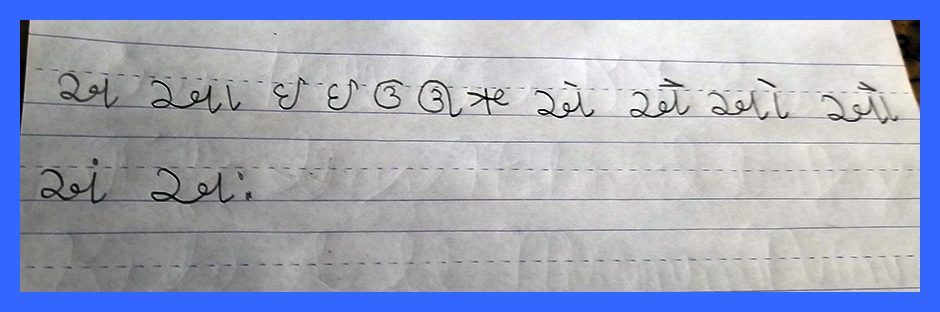 અ આ ઇ ઇ ઉ ઊ ઋ એ ઐ ઓ ઔ
અં અઃ